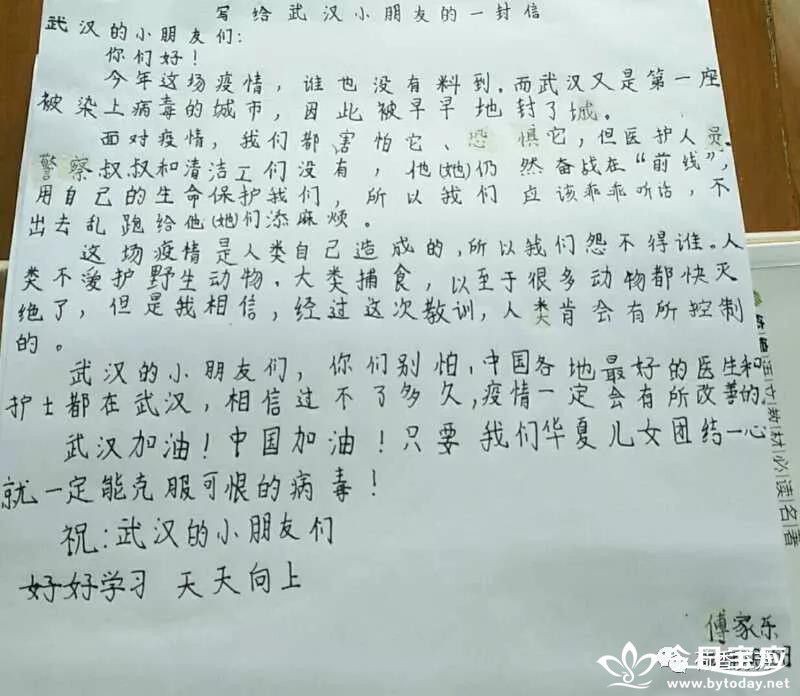 写给武汉小朋友的一封信
武汉的小朋友们:
你们好!
今年这场疫情,谁也没有料到.而武汉又是第一座
被染上病毒的城市,因此被早早地封了城。
面对疫情,我们都害怕它、恐惧它,但医护人员、
警察叔叔和清洁工们没有,他(她)仍然奋战在“前线”,
用自己的生命保护我们,所以我们应该乖乖听话,不
出去乱跑给他(她)们添麻烦。
这场疫情是人类自己造成的,所以我们怨不得谁。人
类不爱护野生动物.大类捕食,以至于很多动物都快灭
绝了,但是我相信,经过这次教训,人类肯会有所控制
的。
武汉的小朋友们,你们别怕,中国各地最好的医生和
护士都在武汉,相信过不了多久,疫情一定会有所改善的.
武汉加油!中国加油!只要我们华夏儿女团结一心
就一定能克服可恨的病毒!
祝:武汉的小朋友们
好好学习 天天向上
傅家乐
必读名著
www.bytoday.net